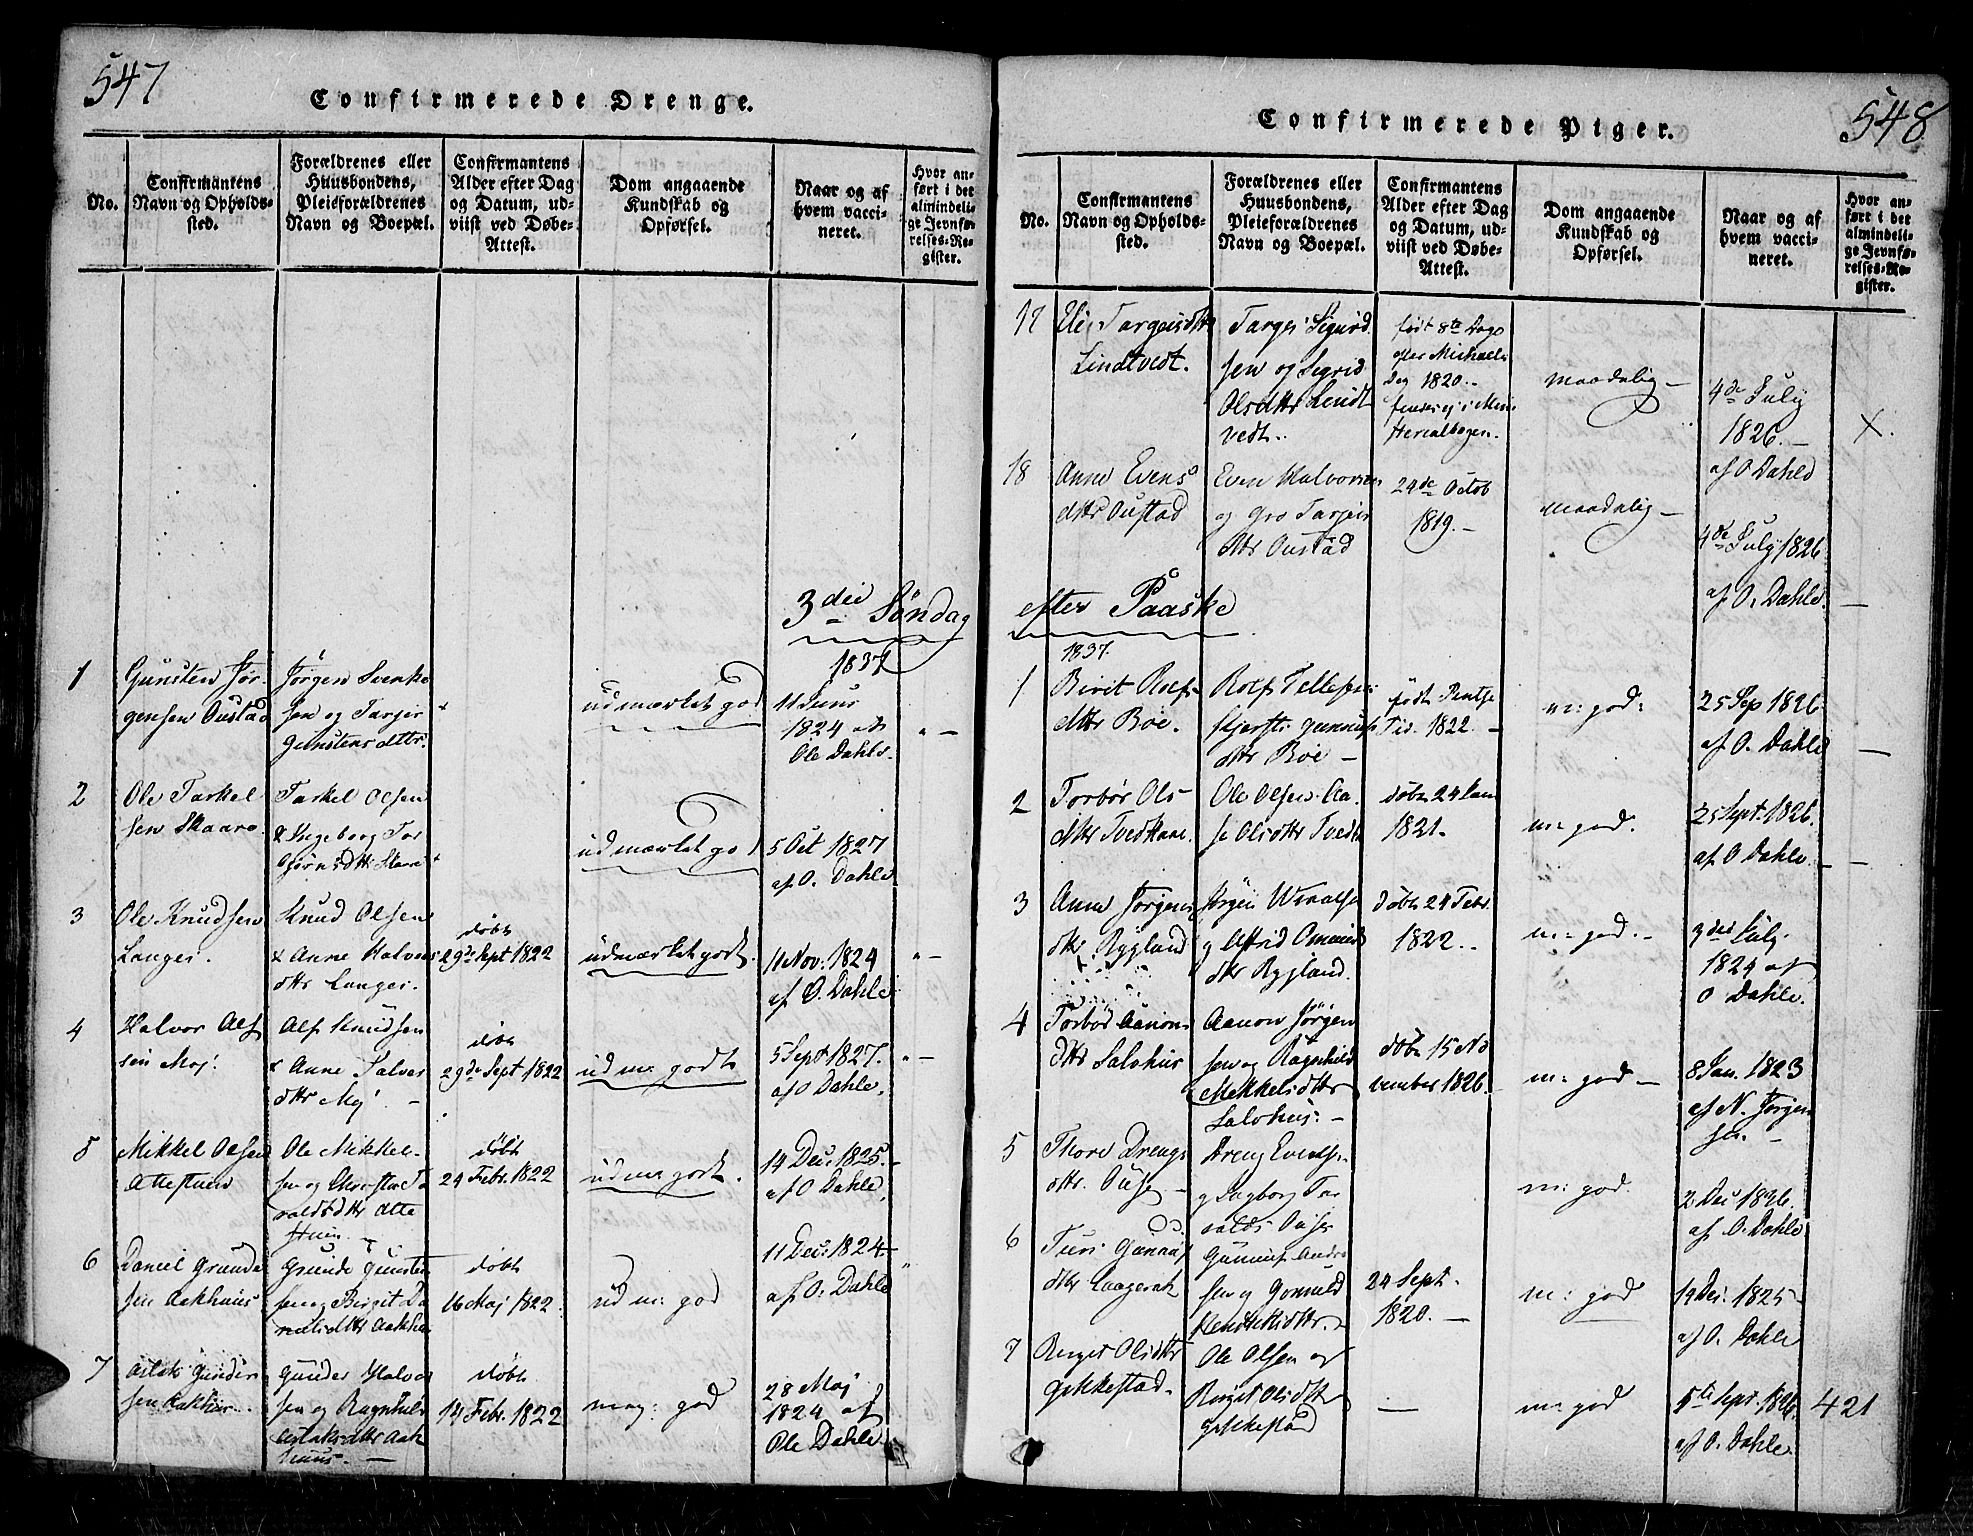 547
Confirmerede Drenge.
No.
Confirmantens
Navn og Opholds-
sted.
Forældrenes eller
Huusbondens,
Pleieforældrenes
Navn og Boepæl.
Confirmantens
Alder efter Dag
og Datum, ud-
viist ved Døbe-
Attest.
Dom angaaende
Kundskab og
Opførsel.
Naar og af
hvem vacci-
neret.
Hvor an-
ført i det
almindeli-
ge Jevnfø-
relses-Re-
gister.
3die Søndag
1837
1
Gunsten Jør-
gensen Oustad
Jørgen Svenke
sen og Targer
Gunstensdttr.
udmærket god
11 Juni
1824
Ole Dahle.
2
Ole Tarkel
sen Skaare
Tarkel Olsen
& Ingeborg Tor
udmærket god
5 Oct 1827
af O. Dahle
3
Ole Knudsen
Langei.
Knud Olsen
& Anne Halvors
dttr Langei.
døbt
29de Sept 1822
udmærket godt.
11 Nov: 1824
af O. Dahle
4
Halvor Alf
sen Moj:
Alf Knudsen
& Anne Salves
dttr Moj. —
døbt
29de Sept 1822
udm: godt
5 Sept 1827.
af O Dahle.
5
Mikkel Olsen
Ole Mikkel-
sen og
døbt
24 Febr. 1822
udm: godt.
14 Dec: 1825.
af O Dahle,
6
Daniel Grunde
sen Aakhuus
Grunde Gunsten
sen og Birgit Da
nielsdttr Aakhu
døbt
16 Maj 1822
udm: god
11 Dec: 1824
af O. Dahle
7
Aslak Gunder
sen Aakhus
Gunder Halvor
sen og Ragnhild
Aslaksdttr Aak
huus. —
døbt
14 Febr. 1822
meg: god
28 Maj
1824 af
Ole Dahle
548
Confirmerede Piger.
No.
Confirmantens
Navn og Opholds-
sted.
Forældrenes eller
Huusbondens,
Pleieforældrenes
Navn og Boepæl.
Confirmantens
Alder efter Dag
og Datum, ud-
viist ved Døbe-
Attest.
Dom angaaende
Kundskab og
Opførsel.
Naar og af
hvem vacci-
neret.
Hvor an-
ført i det
almindeli-
ge Jevnfø-
relses-Re-
gister.
17
Targeisdttr
Lindtvedt.
Targei Sigurd
sen og Sigrid
Olsdttr Lindt
vedt.
født 8te Dage
efter Michaeli
Dag 1820.
maadelig —
4de July
1826. —
af O Dahle
X.
18
Anne Evens
dttr Oustad
Even Halvorsen
og Gro Targeis
dttr Oustad
24de Octob
1819. —
maadelig —
4de July 1826
af O. Dahle.
efter Paaske
1837.
1
Birit Rolfs
dttr Boe.
Rolf Tellefsen
dttr Boe —
født Pintse
Tid. 1822. —
m: god:
25 Sep 1826
af O. Dahle
2
Torbør Ols
dttr
Ole Olsen Aa
se Olsdttr
døbt 24 Jan
1821.
m: god.
25 Sept. 1826.
af O Dahle. —
3
Anne Jørgens
dttr Rygland
Jørgen
g Astrid
dttr Rygland.
døbt 24 Febr.
1822. —
m: god. —
3die July
1824 af
O Dahle.
4
Torbør Aanon
dttr Salohus
Aanon Jørgen
sen og Ragnhild
Mikkelsdttr
Salohus. —
døbt 15 No
vember 1826.
m: god —
8 Jan. 1823
af N. Jørgen
sen. —
5
Thore Drengs
dttr. Ouse —
Dreng
g Ingborg Tar
valds Ouse
m: god.
2 Dec 1826.
af O. Dahle
6
Gunuf Andre
sen g Gunuld
24 Sept.
1820. —
m: god
19 Dec: 1825
af O. Dahle
7
Birget Olsdttr
Gikkestad.
Ole Olsen og
Birget Olsdttr
Gikkestad
—
m: god
5te Sept. 1826.
af O. Dahle.
421